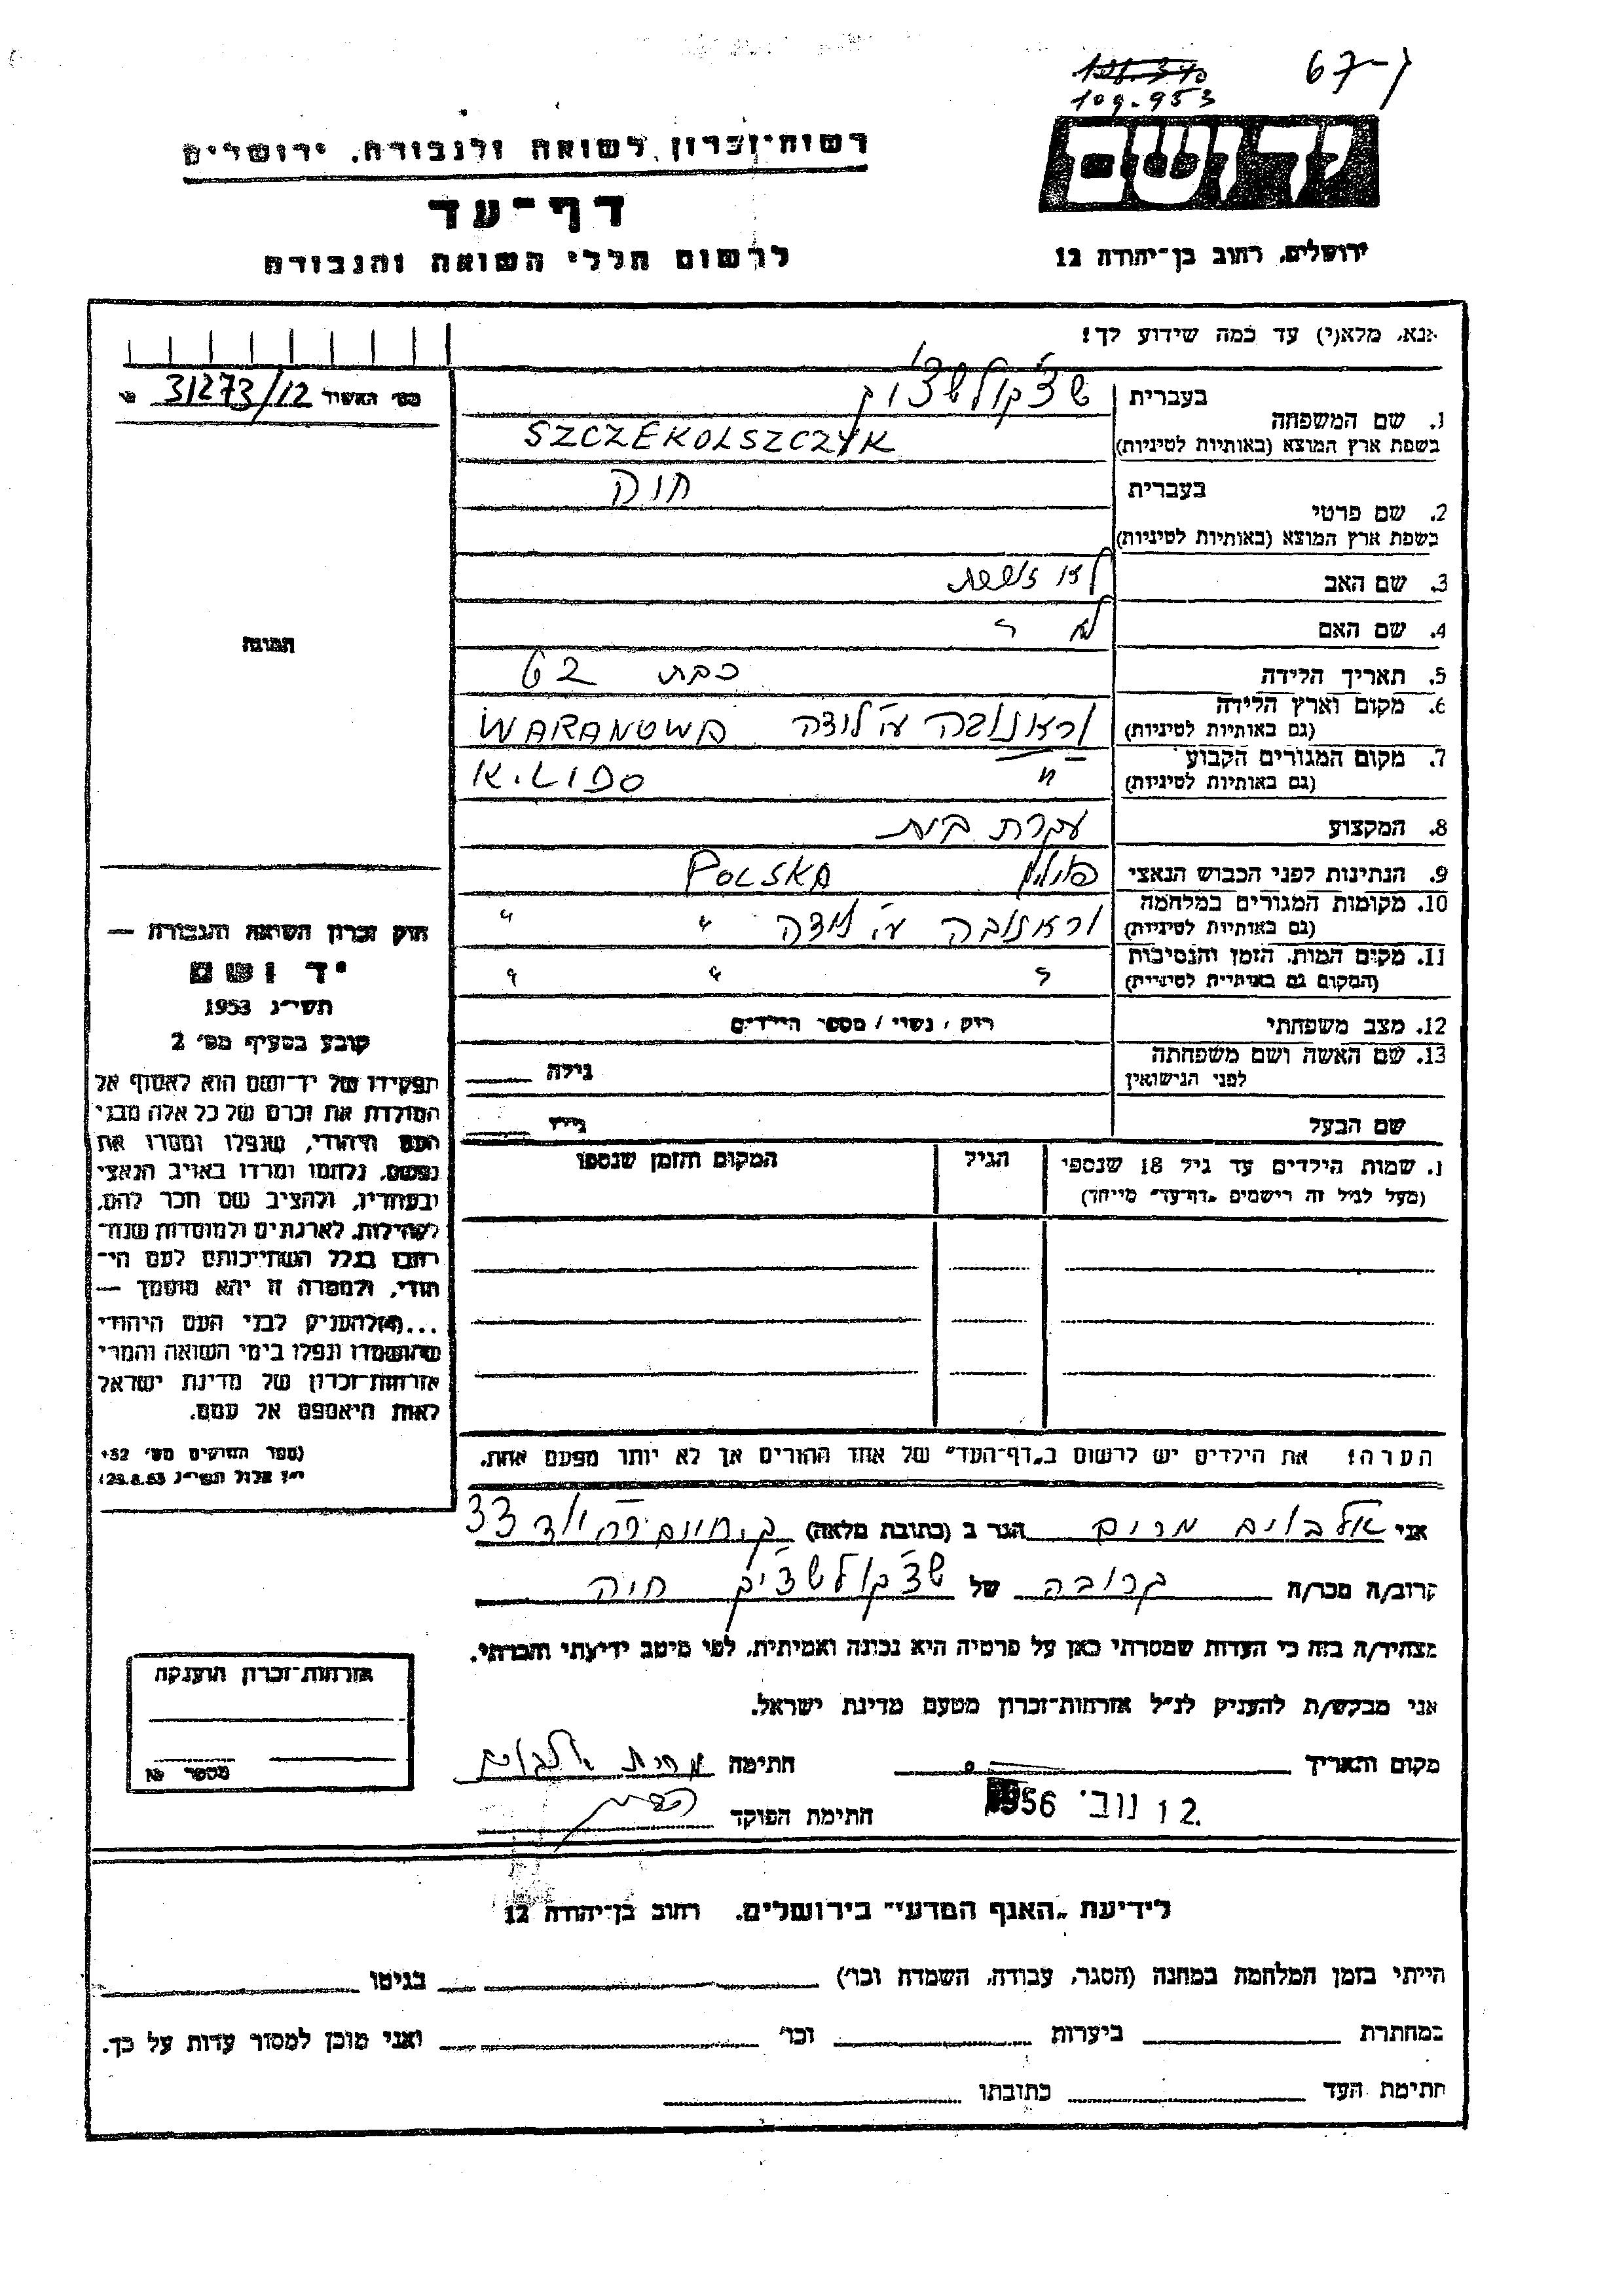 67-7
109.953
יד ושם
ירושלים, רחוב בן־יהודה 12
רשות־זכרון לשואה ולגבורה, ירושלים
דף־עד
לרשום חללי השואה והגבורה
אנא, מלא(י) עד כמה שידוע לך!
מס׳ האשור 31273/12
1. שם המשפחה
בעברית
בשפת ארץ המוצא (באותיות לטיניות) SZCZEKOLSZCZYK
2. שם פרטי
בעברית חוה
בשפת ארץ המוצא (באותיות לטיניות)
3. שם האב
4. שם האם
5. תאריך הלידה כבת 62
6. מקום וארץ הלידה
(גם באותיות לטיניות) WARANOWA
7. מקום המגורים הקבוע
(גם באותיות לטיניות) "
8. המקצוע עקרת בית
9. הנתינות לפני הכבוש הנאצי פולין POLSKA
10. מקומות המגורים במלחמה
(גם באותיות לטיניות) " "
11. מקום המות, הזמן והנסיבות
(המקום גם באותיות לטיניות) " "
12. מצב משפחתי רוק / נשוי / מספר הילדים
13. שם האשה ושם משפחתה
לפני הנישואין גילה
שם הבעל גילו
שמות הילדים עד גיל 18 שנספו הגיל המקום והזמן שנספו
(מעל לגיל זה רישמים „דף־עד” מייחד)
הערה! את הילדים יש לרשום ב„דף־העד” של אחד ההורים אך לא יותר מפעם אחת.
התמונה
חוק זכרון השואה והגבורה —
יד ושם
תשי״ג 1953
קובע בסעיף מס׳ 2
תפקידו של יד־ושם הוא לאסוף אל
המולדת את זכרם של כל אלה מבני
העם היהודי, שנפלו ומסרו את
נפשם, נלחמו ומרדו באויב הנאצי
ובעוזריו, ולהציב שם וזכר להם,
לקהילות, לארגונים ולמוסדות שנח־
רבו בגלל השתייכותם לעם הי־
הודי, ולמטרה זו יהא מוסמך —
...(4) להעניק לבני העם היהודי
שהושמדו ונפלו בימי השואה והמרי
אזרחות־זכרון של מדינת ישראל
לאות היאספם אל עמם.
(ספר החוקים מס׳ 132
י״ז אלול תשי״ג 28.8.53)
אני אלבוים מרים הגר ב (כתובת מלאה) ק. חיים 33
קרוב/ה מכר/ה קרובה של חיה
מצהיר/ה בזה כי העדות שמסרתי כאן על פרטיה היא נכונה ואמיתית, לפי מיטב ידיעתי והכרתי.
אני מבקש/ת להעניק לנ״ל אזרחות־זכרון מטעם מדינת ישראל.
מקום ותאריך חתימה
12 נוב׳ 1956 חתימת הפוקד
אזרחות־זכרון הוענקה
מספר
לידיעת „האגף המדעי” בירושלים, רחוב בן־יהודה 12
הייתי בזמן המלחמה במחנה (הסגר, עבודה, השמדה וכו׳) בגיטו
במחתרת ביערות וכו׳ ואני מוכן למסור עדות על כך.
חתימת העד כתובתו